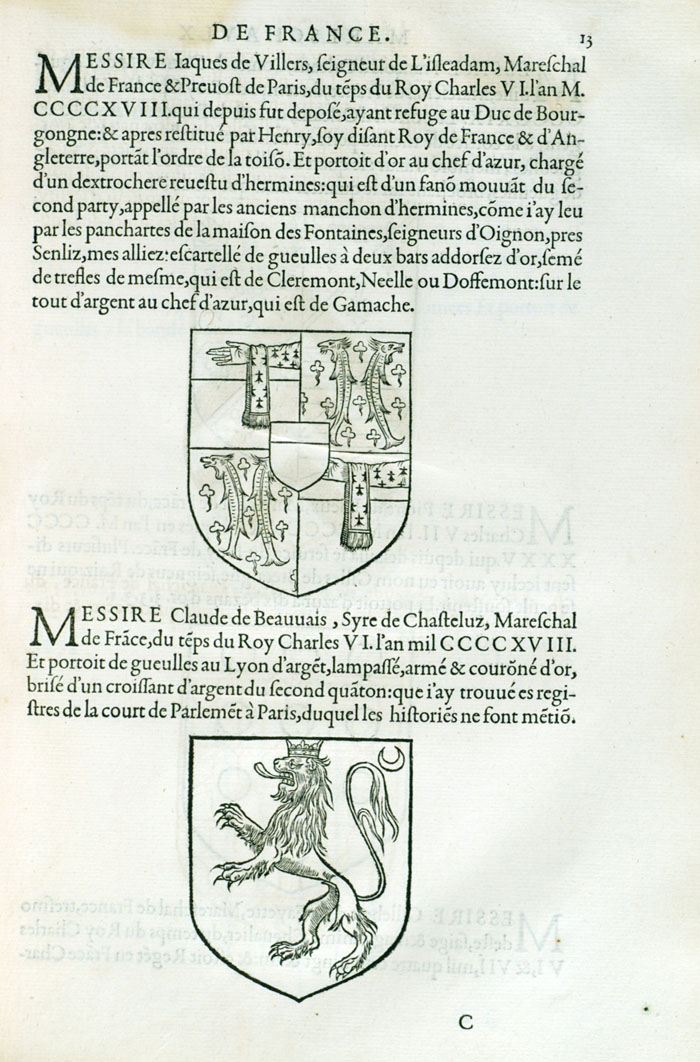 DE FRANCE. 13
MESSIRE Iaques de Villers, ſeigneur de L'iſleadam, Mareſchal
de France &Preuoſt de Paris,du tẽps du Roy Charles VI.l'an M.
CCCCXVIII.qui depuis fut depoſé,ayant refuge au Duc de Bour-
gongne:& apres reſtitué par Henry,ſoy diſant Roy de France & d'An-
gleterre,portãt l'ordre de la toiſõ. Et portoit d'or au chef d'azur, chargé
d'un dextrochere reueſtu d'hermines:qui eſt d'un fanõ mouuãt du ſe-
cond party,appellé par les anciens manchon d'hermines,cõme i'ay leu
par les panchartes de la maiſon des Fontaines,ſeigneurs d'Oignon,pres
Senliz,mes alliez:eſcartellé de gueulles à deux bars addorſez d'or,ſemé
de trefles de meſme,qui eſt de Cleremont,Neelle ou Doffemont:ſur le
tout d'argent au chef d'azur,qui eſt de Gamache.
MESSIRE Claude de Beauuais , Syre de Chaſteluz, Mareſchal
de Frãce,du tẽps du Roy Charles VI.l'an mil CCCCXVIII.
Et portoit de gueulles au Lyon d'argẽt,lampaſſé,armé & courõné d'or,
briſé d'un croiſſant d'argent du ſecond quãton:que i'ay trouué es regi-
ſtres de la court de Parlemẽt à Paris,duquel les hiſtoriẽs ne font mẽtiõ.
C